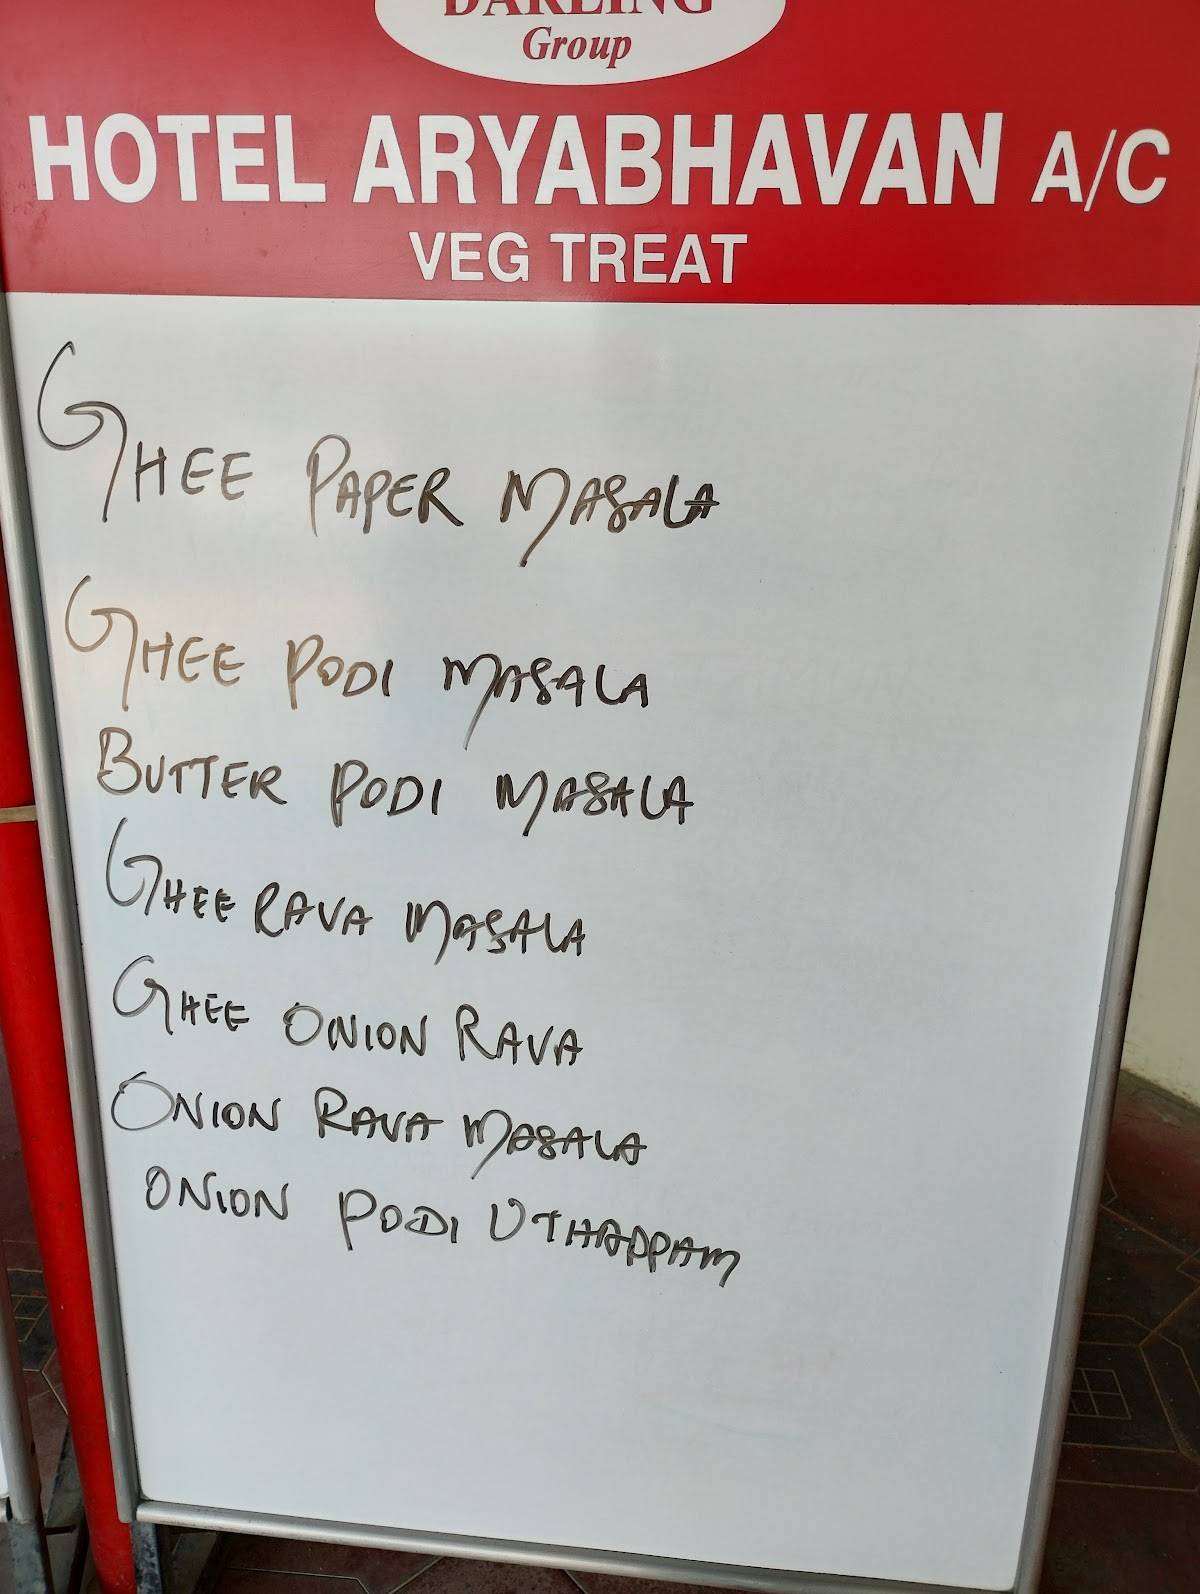 DARLING
Group
HOTEL ARYABHAVAN A/C
VEG TREAT
GHEE PAPER MASALA
GHEE PODI MASALA
BUTTER PODI MASALA
GHEE RAVA MASALA
GHEE ONION RAVA
ONION RAVA MASALA
ONION PODI UTHAPPAM